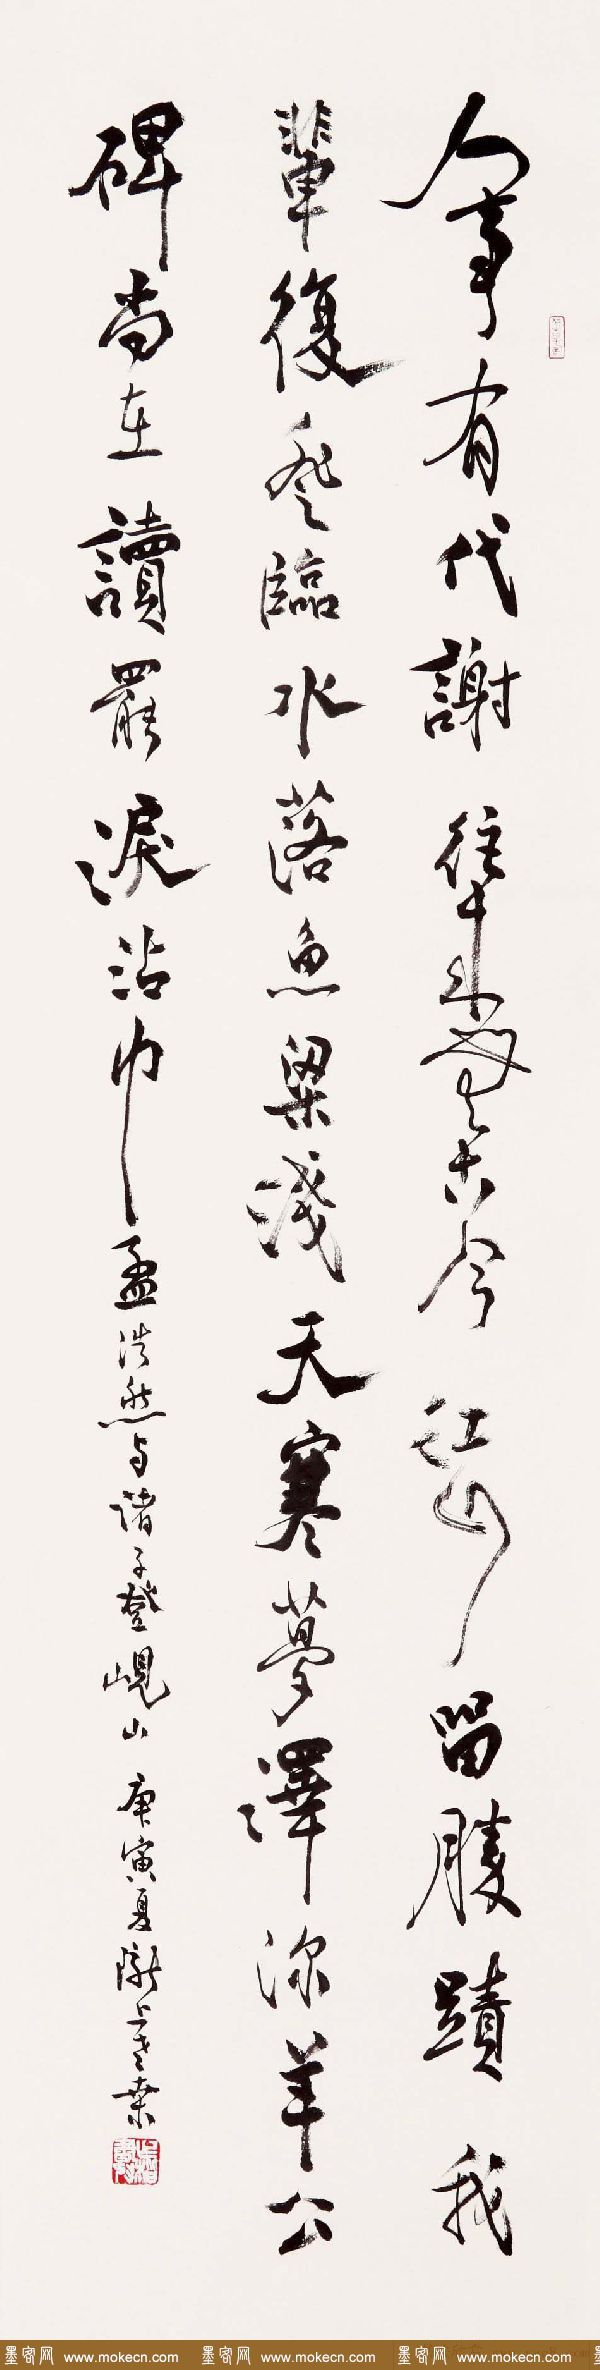 人事有代謝往來成古今江山留勝蹟我
輩復登臨水落魚梁淺天寒夢澤深羊公
碑尚在讀罷淚沾巾孟浩然与諸子登峴山庚寅夏
墨客网 www.mokecn.com 墨客网 www.mokecn.com 墨客网 www.mokecn.com